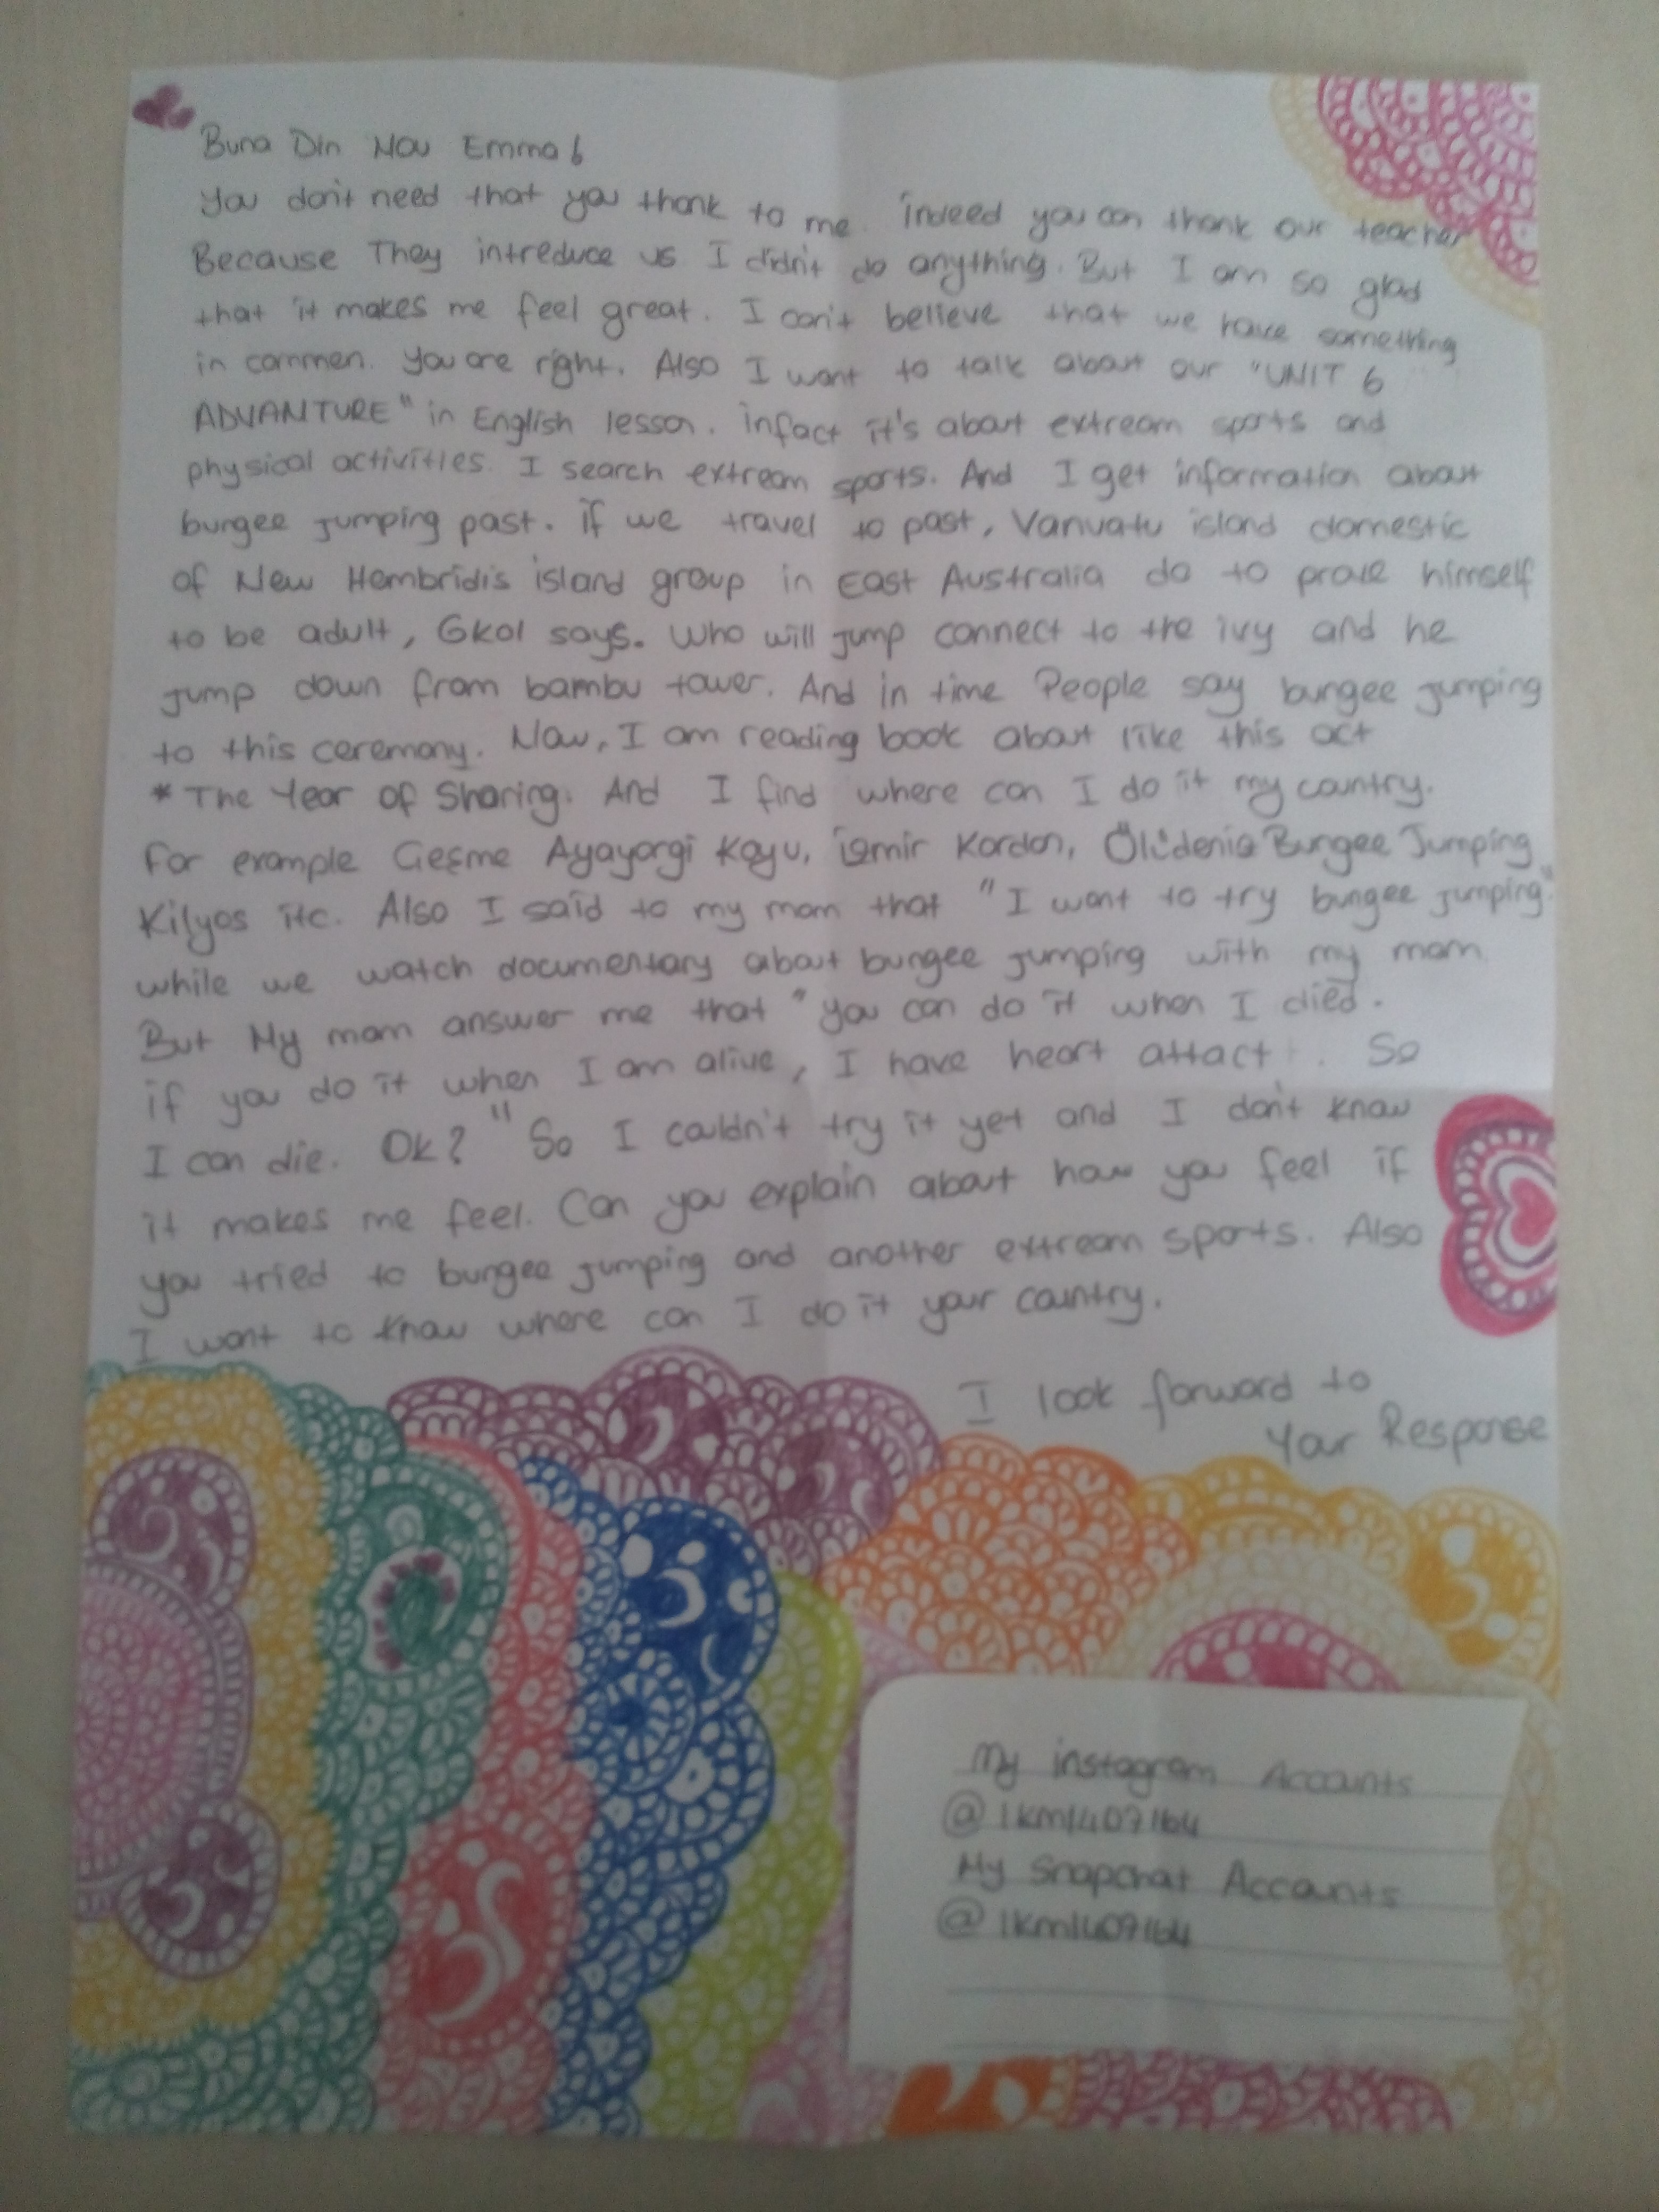 Buna Din Nou Emma!
You don't need that you thank to me. indeed you can thank our teacher
Because They intreduce us I didn't do anything. But I am so glad
that it makes me feel great. I can't believe that we have something
in commen. You are right. Also I want to talk about our "UNIT 6
ADVANTURE" in English lesson. infact it's about extream sports and
physical activities. I search extream sports. And I get information about
bungee jumping past. if we travel to past, Vanuatu island domestic
of New Hembridis island group in East Australia do to prove himself
to be adult, Gkol says. Who will jump connect to the ivy and he
jump down from bambu tower. And in time People say bungee jumping
to this ceremony. Now, I am reading book about like this act
* The Year of Sharing. And I find where can I do it my country.
For example Çeşme Ayayorgi Koyu, izmir Kordon, Ölüdeniz Bungee Jumping
Kilyos itc. Also I said to my mom that "I want to try bungee jumping"
while we watch documentary about bungee jumping with my mom
But My mom answer me that "you can do it when I died.
if you do it when I am alive, I have heart attact. So
I can die. Ok?" So I couldn't try it yet and I don't know
it makes me feel. Can you explain about how you feel if
you tried to bungee jumping and another extream sports. Also
I want to know where can I do it your country.
I look forward to
Your Response
My instagram Accounts
My Snapchat Accounts